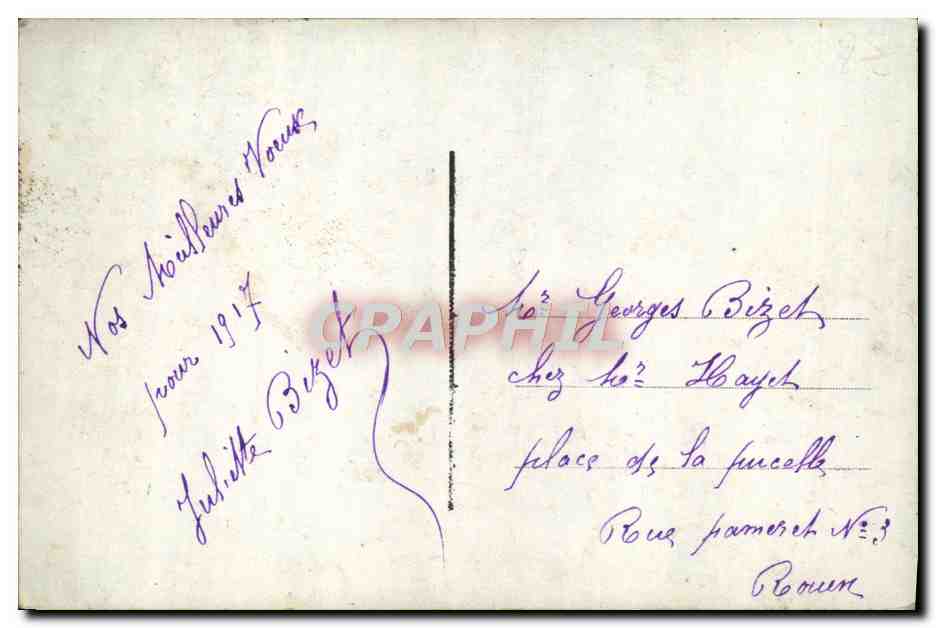 Nos Meilleures Voeux
pour 1917
Juliette Bizet
Mr Georges Bizet
chez Mr Hayet
place de la pucelle
Rue pameret No 3
Rouen
CPAPHIL